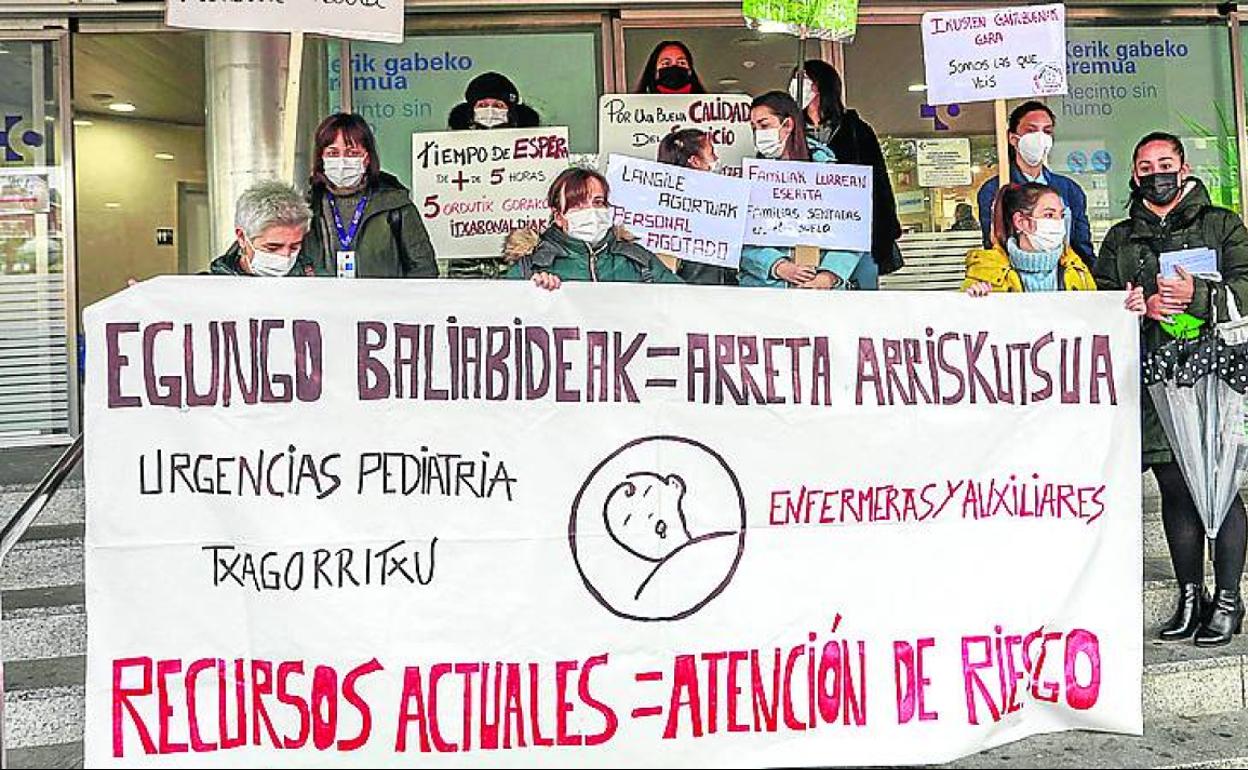 Kerik gabeko
eremua
Recinto sin
IKUSTEN GAITUZUENAK
GARA
SOMOS LAS QUE
VEIS
Kerik gabeko
eremua
Recinto sin
humo
POR UNA BUENA
CALIDAD
DEL SERVICIO
TIEMPO DE ESPERA
DE + DE 5 HORAS
5 ORDUTIK GORAKO
ITXARONALDIAK
LANGILE
AGORTUAK
PERSONAL
AGOTADO
FAMILIAK LURREAN
ESERITA
FAMILIAS SENTADAS
EN EL SUELO
EGUNGO BALIABIDEAK = ARRETA ARRISKUTSUA
URGENCIAS PEDIATRIA
TXAGORRITXU
ENFERMERAS Y AUXILIARES
RECURSOS ACTUALES = ATENCIÓN DE RIESGO